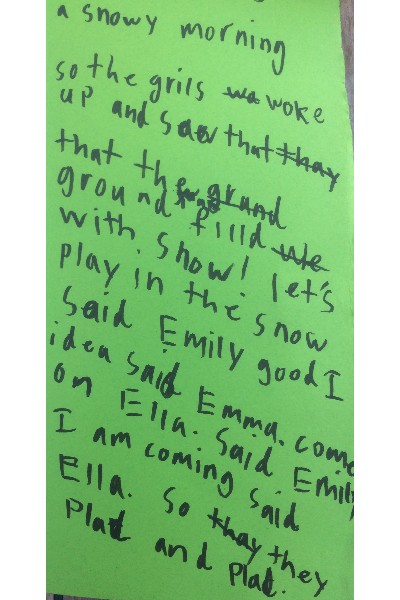 a snowy morning
so the grils wa woke
up and saw that thay
that the grund
ground filld we
with snow! let's
play in the snow
said Emily good I
idea said Emma. come
on Ella. said Emily
I am coming said
Ella. So thay they
Plad and Plad.